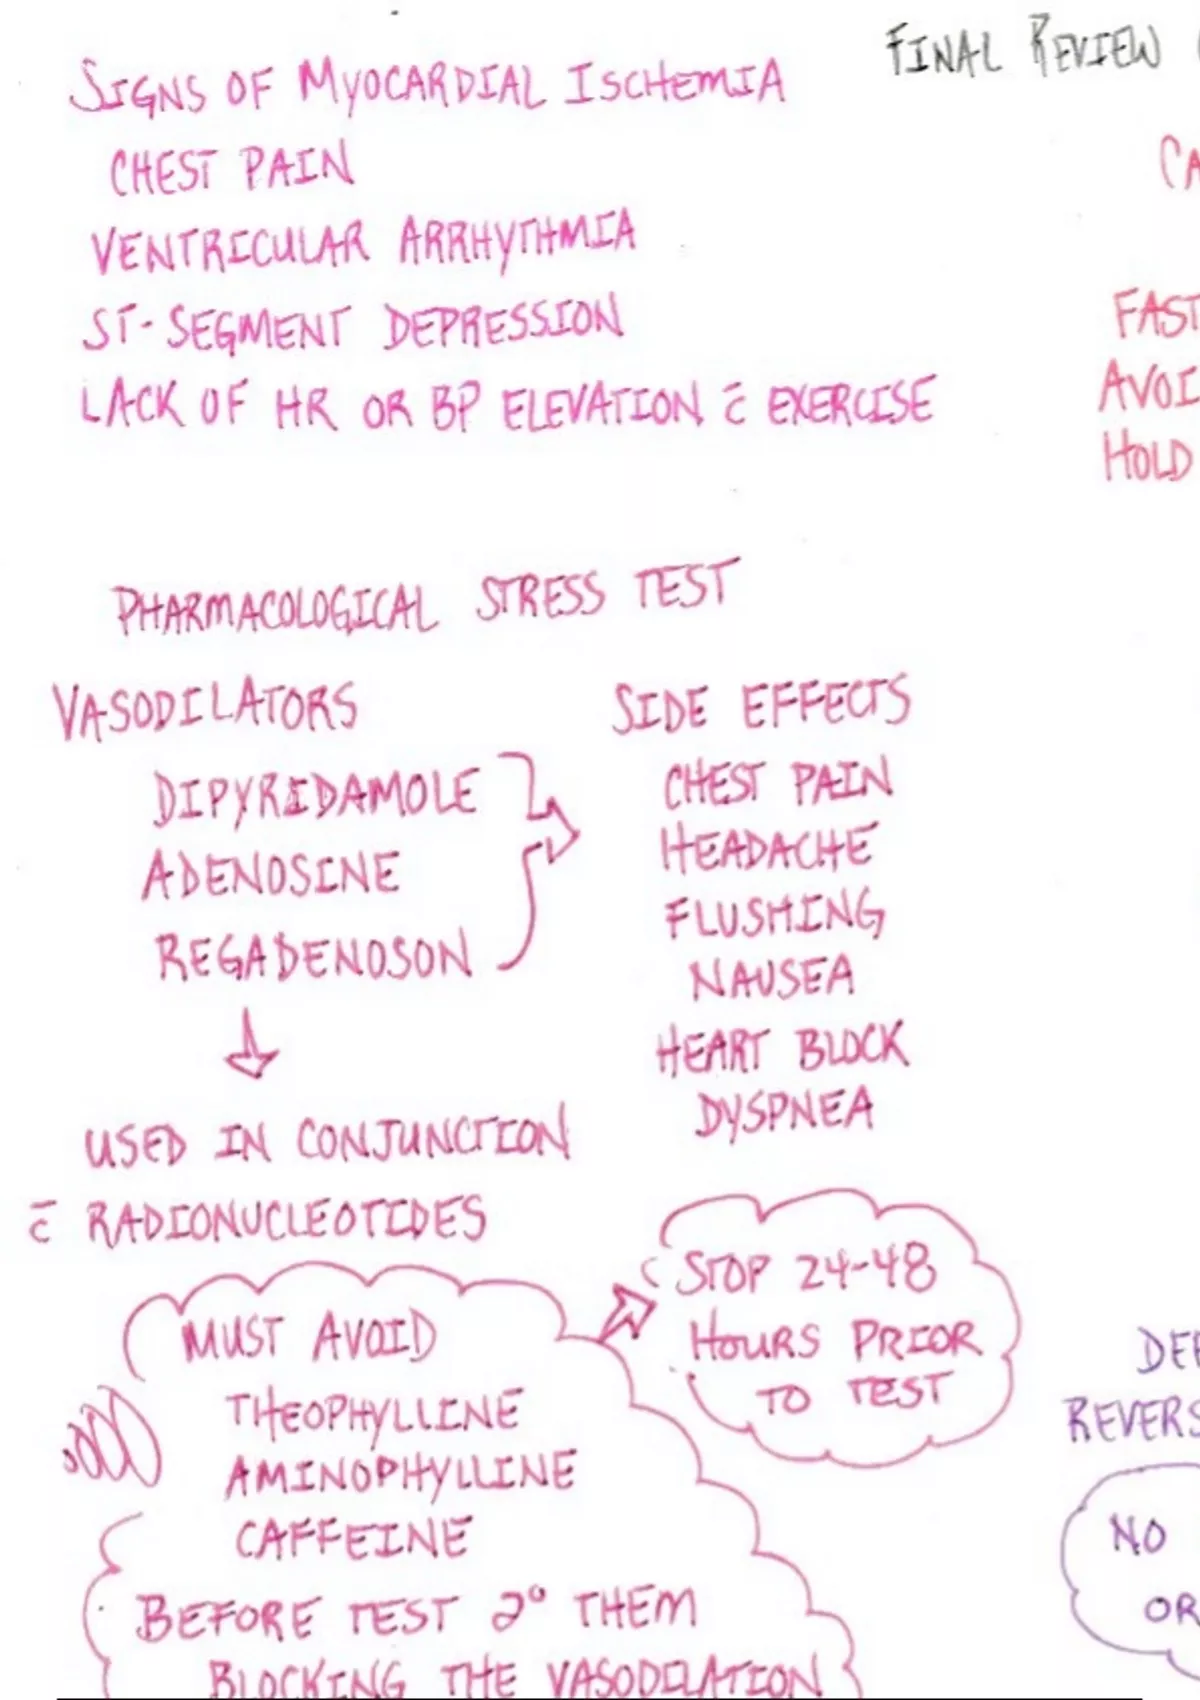 FINAL REVIEW
SIGNS OF MYOCARDIAL ISCHEMIA
CHEST PAIN
VENTRICULAR ARRHYTHMIA
ST-SEGMENT DEPRESSION
LACK OF HR OR BP ELEVATION c̄ EXERCISE
CA
FAST
AVOI
HOLD
PHARMACOLOGICAL STRESS TEST
VASODILATORS
DIPYRIDAMOLE
ADENOSINE
REGADENOSON
USED IN CONJUNCTION
c̄ RADIONUCLEOTIDES
SIDE EFFECTS
CHEST PAIN
HEADACHE
FLUSHING
NAUSEA
HEART BLOCK
DYSPNEA
MUST AVOID
THEOPHYLLINE
AMINOPHYLLINE
CAFFEINE
BEFORE TEST 2° THEM
BLOCKING THE VASODILATION
STOP 24-48
HOURS PRIOR
TO TEST
DEF
REVERS
NO
OR